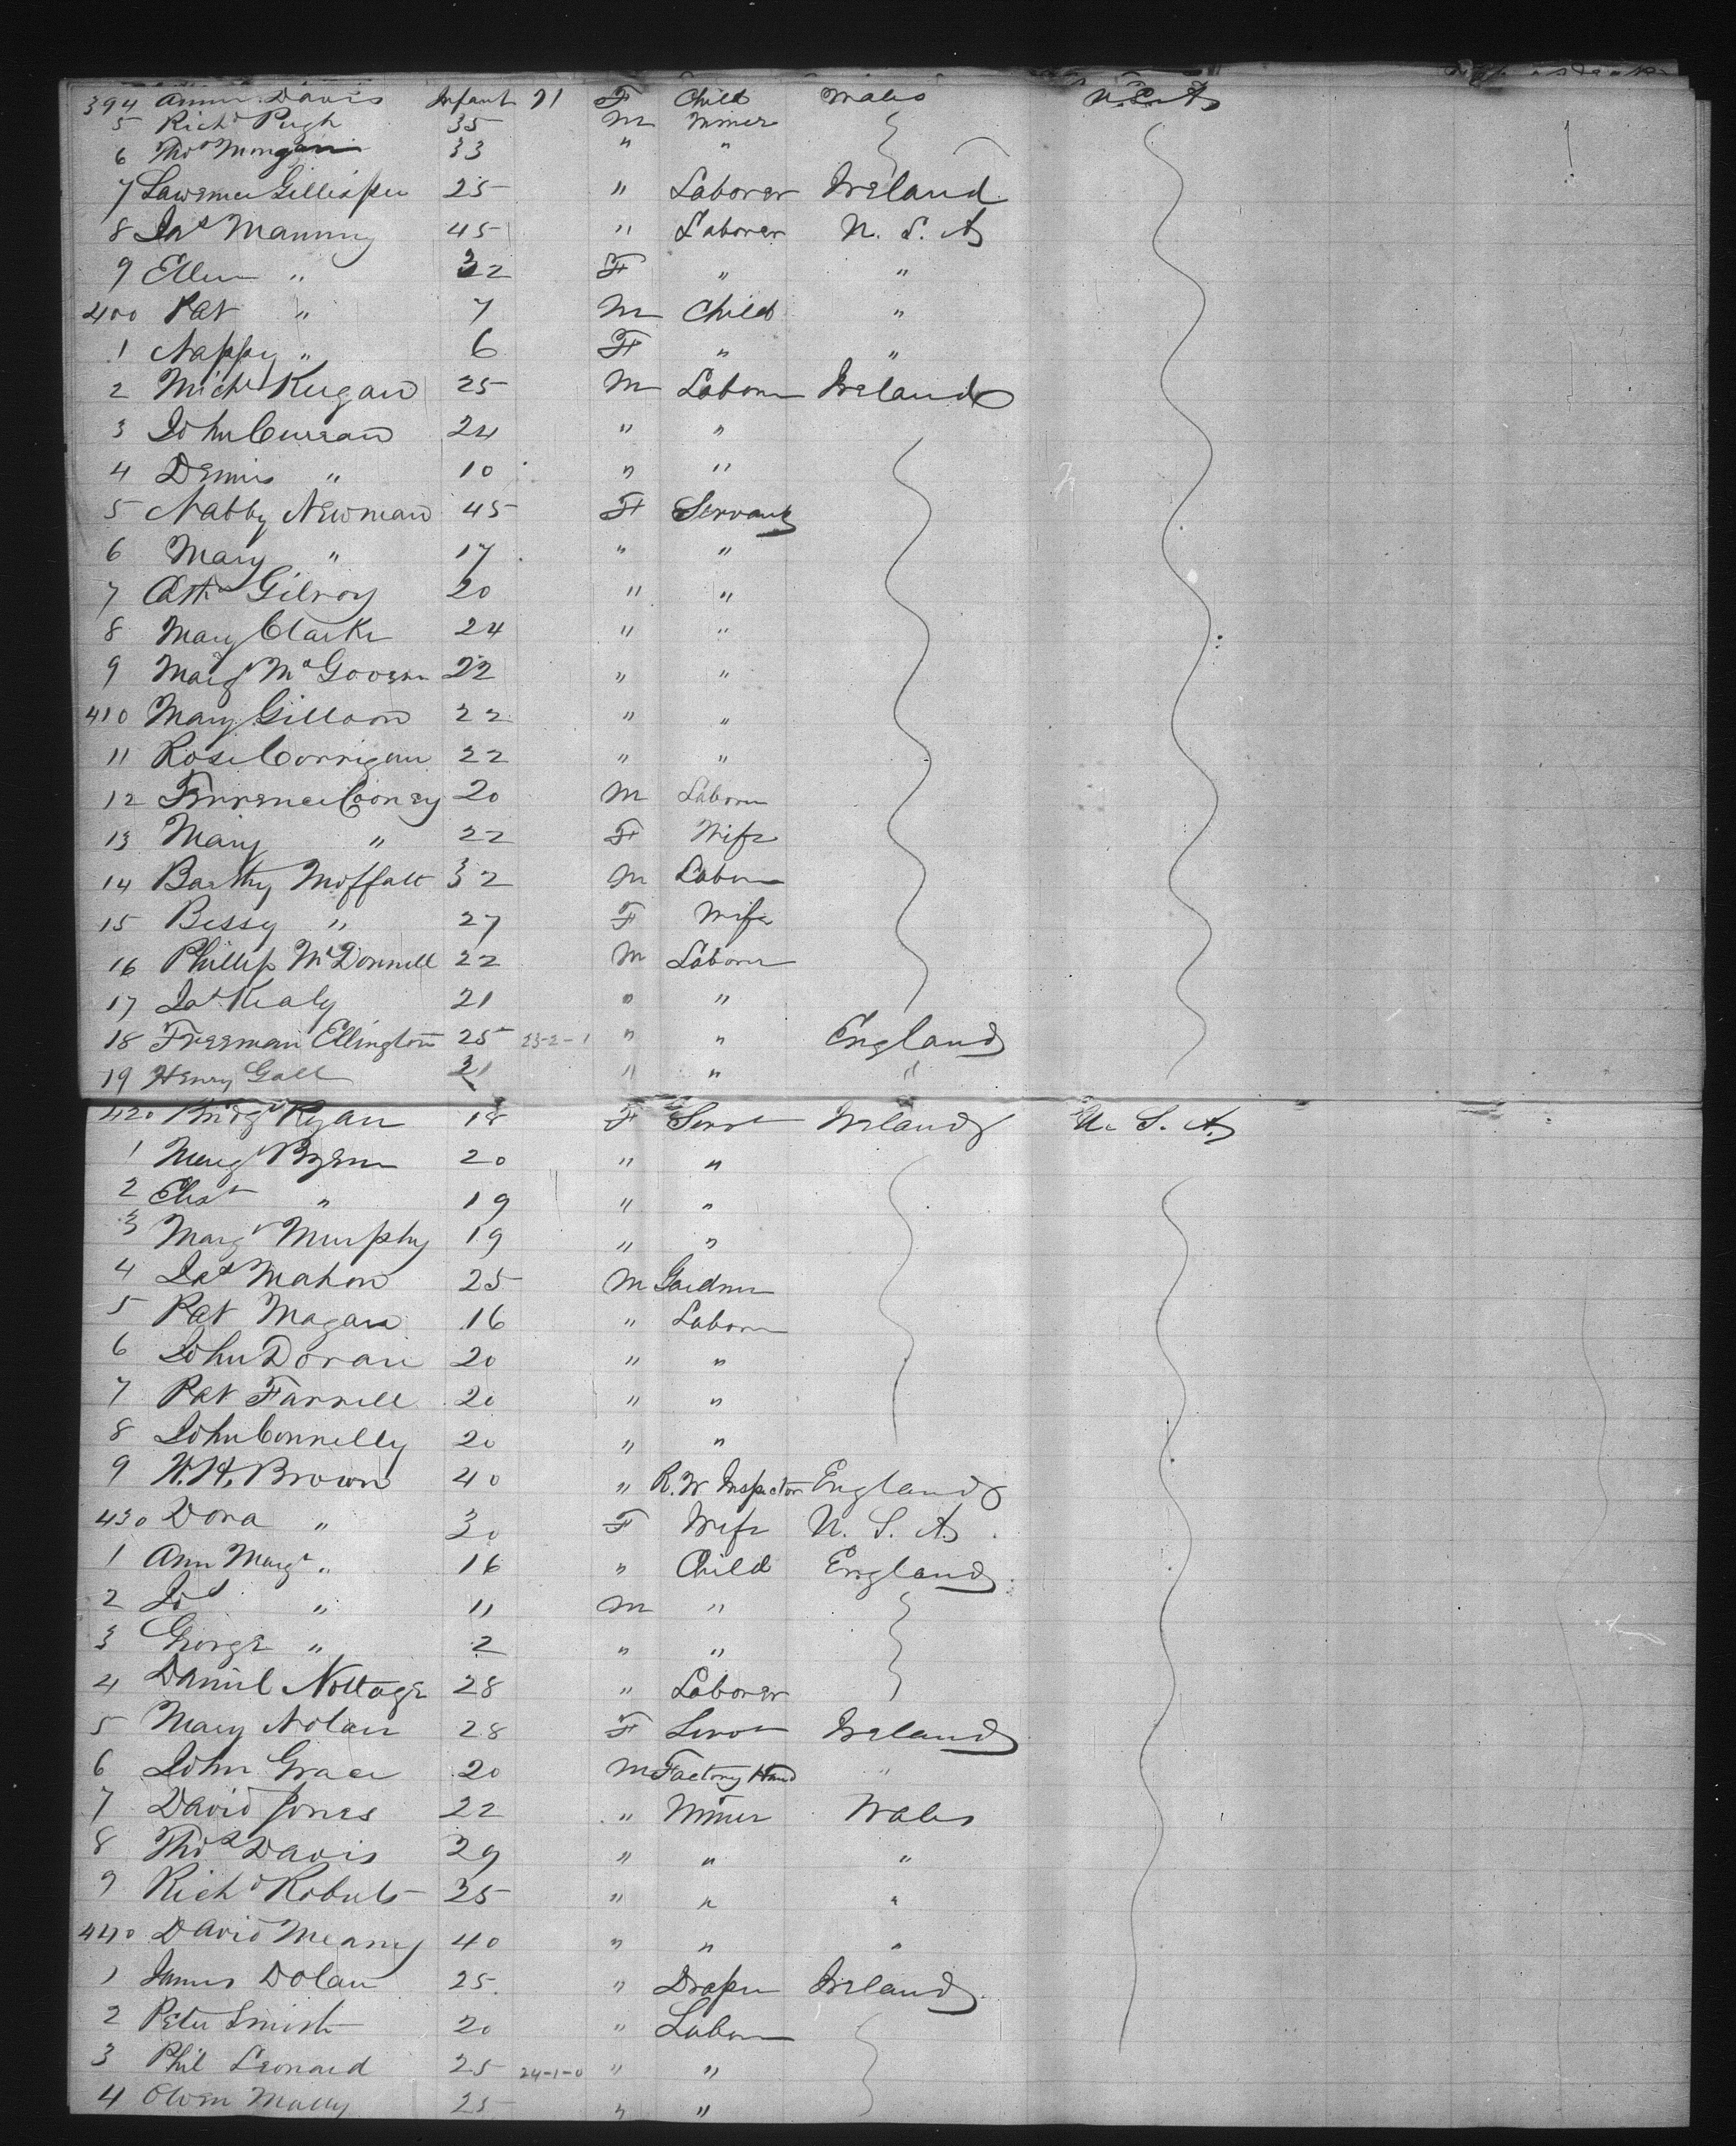 394 Annie Davis Infant 21 F Child Wales U.S.A
5 Richd Pugh 35 M Miner
6 Thos Morgan 33 " "
7 Lawrence Gillespie 25 " Laborer Ireland
8 Jas Manning 45 " Laborer U. S. A
9 Ellen " 32 F " "
400 Pat " 7 M Child "
1 Nappy " 6 F " "
2 Michl Keegan 25 M Laborer Ireland
3 John Curran 24 " "
4 Dennis " 10 " "
5 Nabby Newman 45 F Servant
6 Mary " 17 " "
7 Cathe Gilroy 20 " "
8 Mary Clarke 24 " "
9 Margt McGovern 22 " "
410 Mary Gilloon 22 " "
11 Rose Corrigan 22 " "
12 Terrence Cooney 20 M Laborer
13 Mary " 22 F Wife
14 Barthy Moffatt 32 M Laborer
15 Bessy " 27 F Wife
16 Phillip McDonnell 22 M Laborer
17 Jas Kealy 21 " "
18 Freeman Ellington 25 23-2-1 " " England
19 Henry Gall 21 " " "
420 Bridgt Ryan 18 F Servt Ireland U. S. A.
1 Margt Byrne 20 " "
2 Elizth " 19 " "
3 Margt Murphy 19 " "
4 Jas Mahon 25 M Gardner
5 Pat Magan 16 " Laborer
6 John Doran 20 " "
7 Pat Farrell 20 " "
8 John Connelly 20 " "
9 W. H. Brown 40 " R. W Inspector England
430 Dora " 30 F Wife U. S. A.
1 Ann Margt " 16 " Child England
2 Jos " 11 M "
3 George " 2 " "
4 Daniel Nottage 28 " Laborer
5 Mary Nolan 28 F Servt Ireland
6 John Grace 20 M Factory Hand "
7 David Jones 22 " Miner Wales
8 Thos Davis 29 " " "
9 Richd Roberts 25 " " "
440 David Meany 40 " " "
1 James Dolan 25 " Draper Ireland
2 Peter Smith 20 " Laborer
3 Phil Leonard 25 24-1-0 " "
4 Owen Mally 25 " "